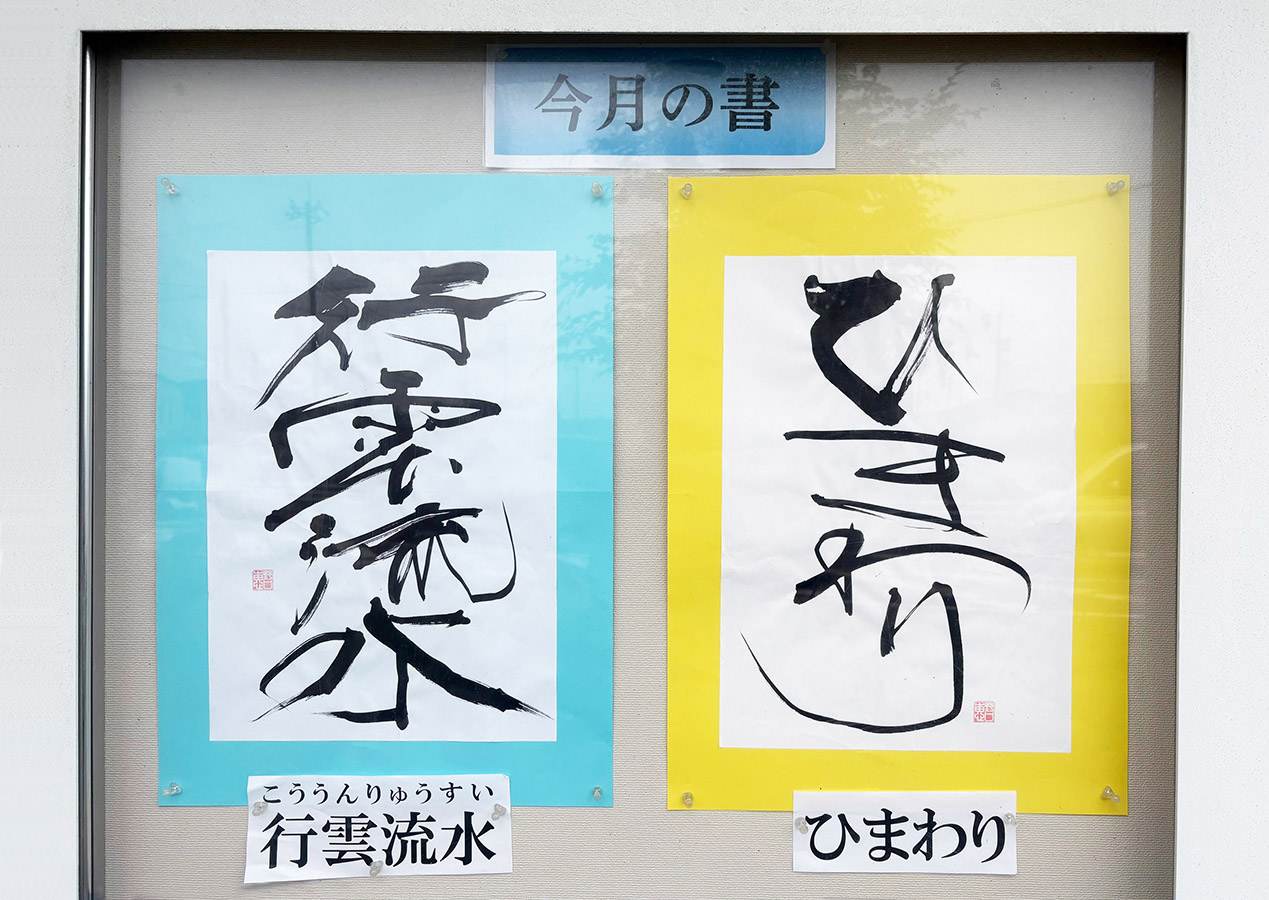 今月の書
行雲流水
こううんりゅうすい
行雲流水
ひまわり
ひまわり